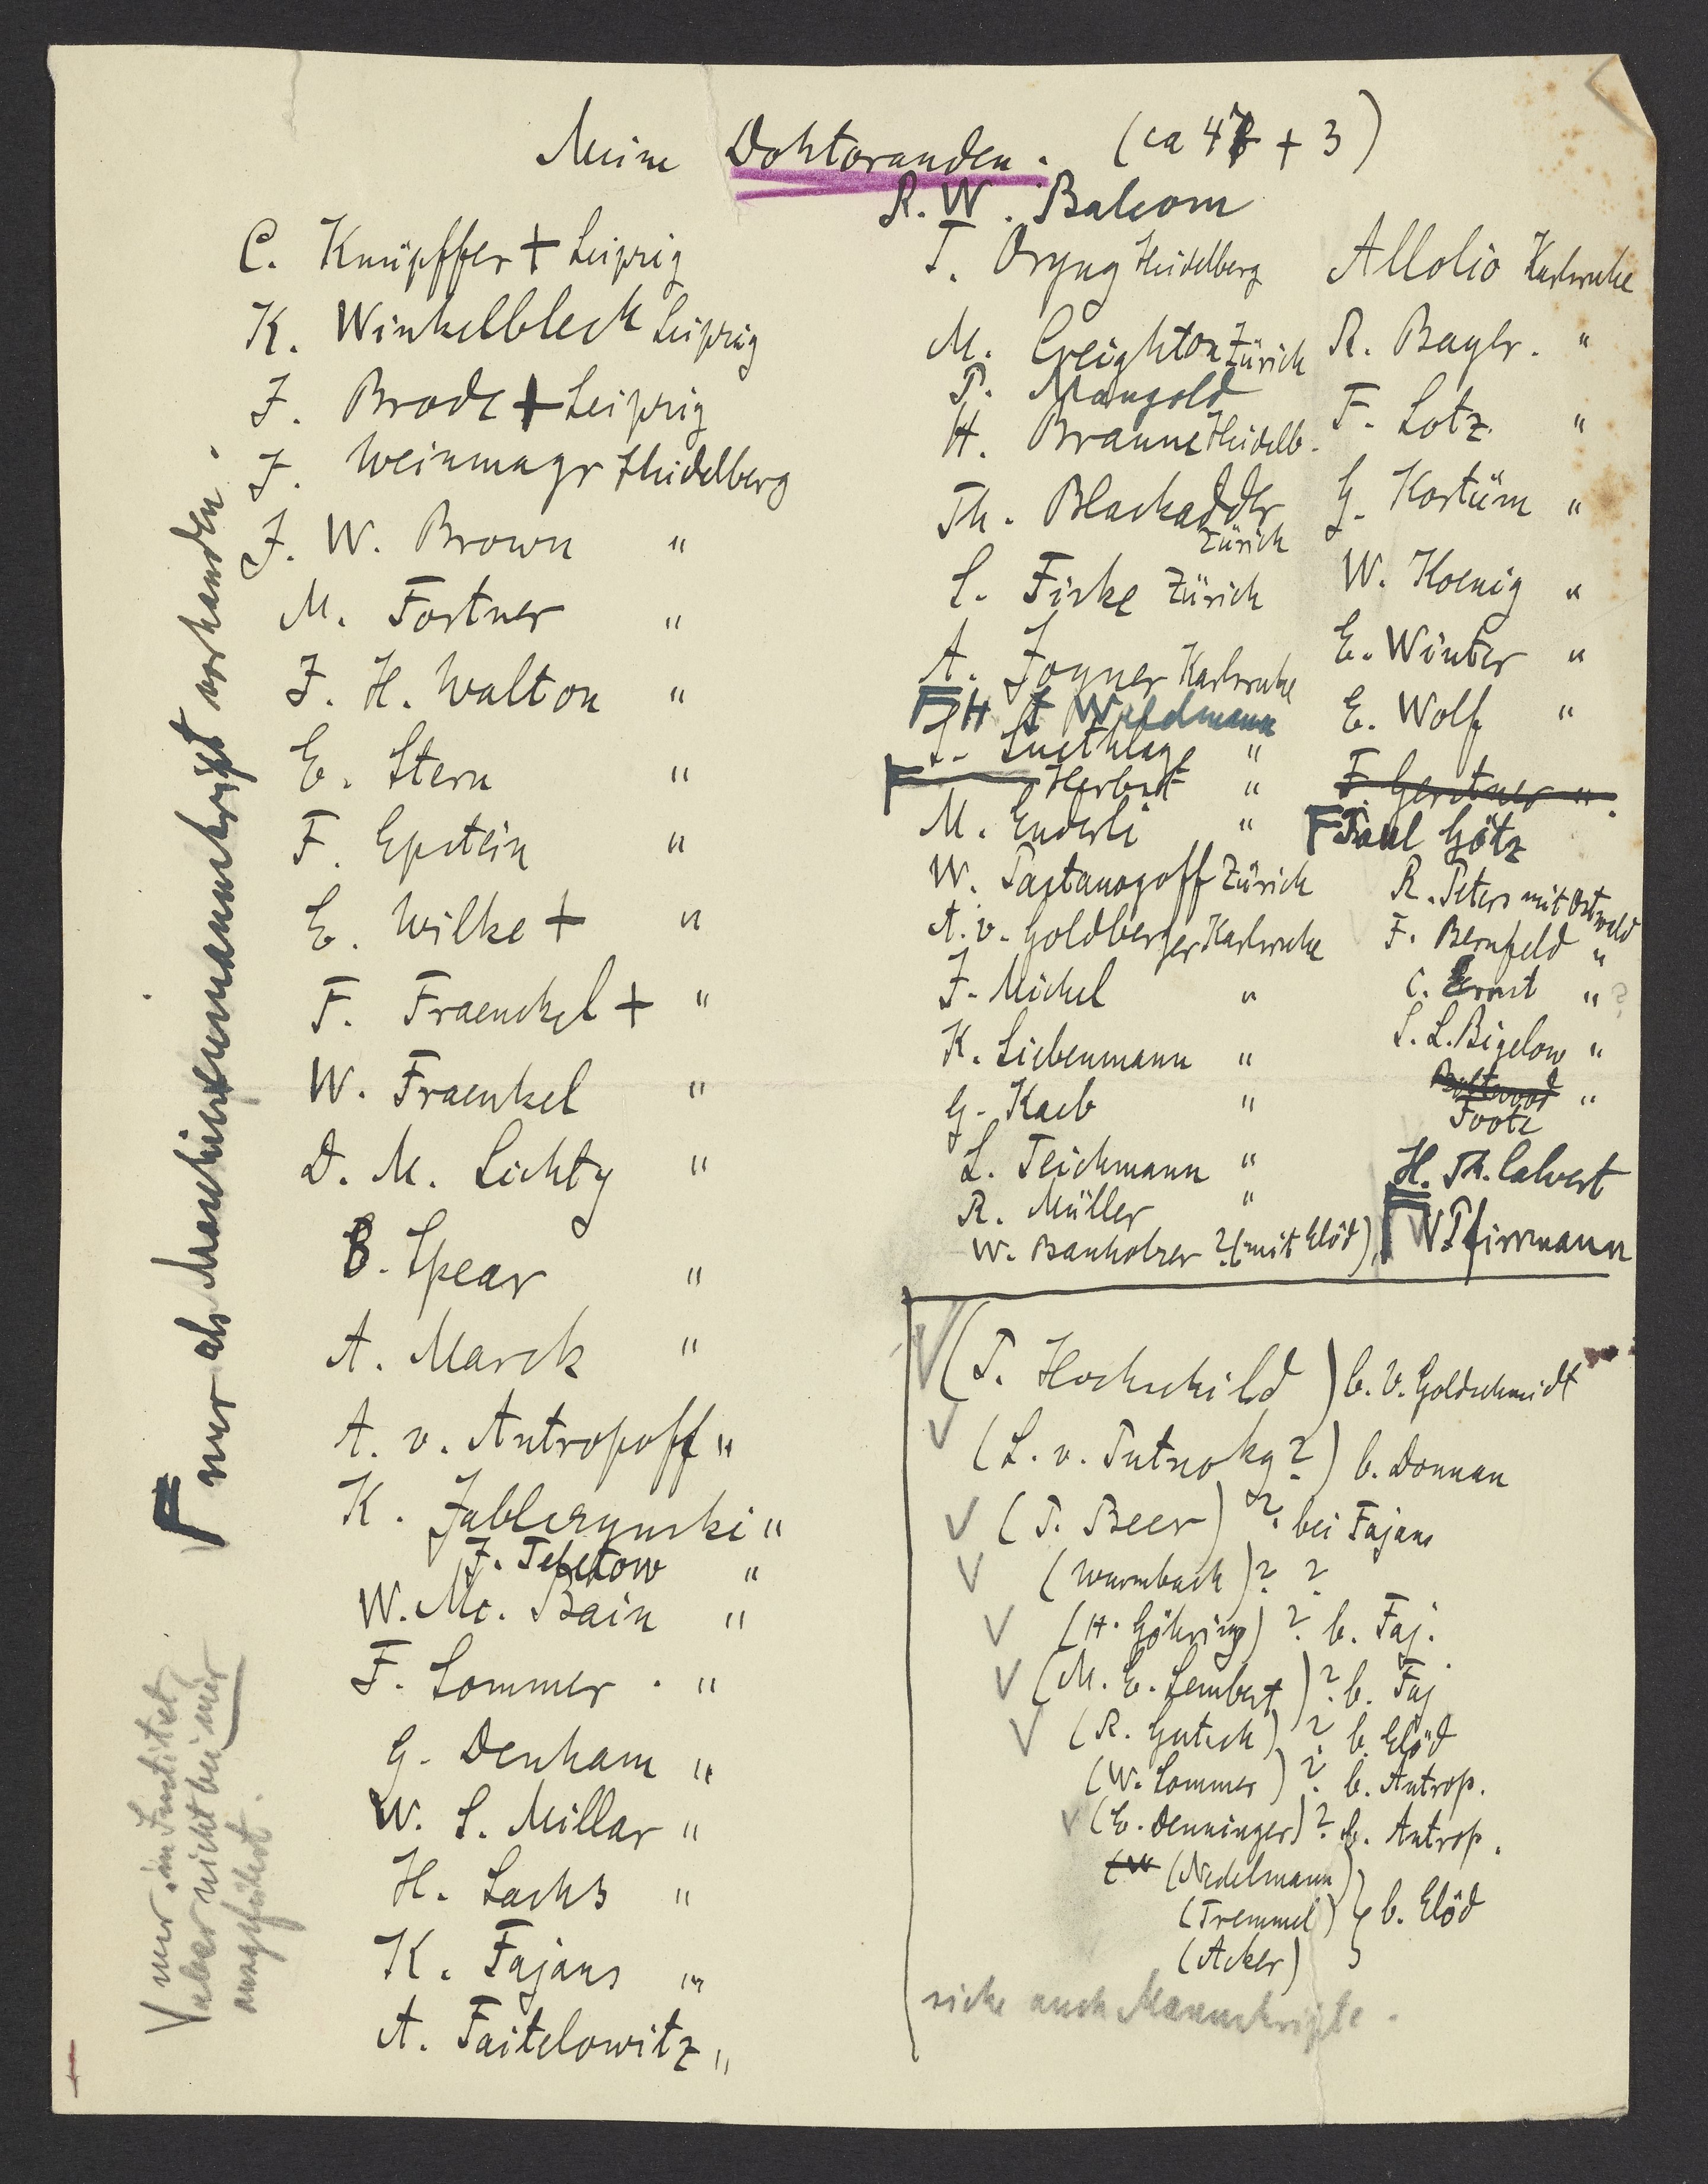 Meine Doktoranden. (ca 47 + 3)
C. Knüpffer + Leipzig
K. Winkelbleck Leipzig
J. Brode + Leipzig
J. Weinmayr Heidelberg
J. W. Brown "
M. Fortner "
J. H. Walton "
E. Stern "
F. Epstein "
E. Wilke + "
F. Fraenckel + "
W. Fraenkel "
D. M. Lichty "
B. Spear "
A. Marck "
A. v. Antropoff "
K. Jablczynski "
J. Teletow "
W. Mc. Bain "
F. Sommer . "
G. Denham "
W. S. Millar "
H. Sachs "
K. Fajans "
A. Taitelowitz "
R. W. Balcom
T. Oryng Heidelberg
M. Creighton Zürich
P. Mangold
H. Braune Heidelb.
Th. Blackadder
Zürich
S. Fiske Zürich
A. Jogner Karlsruhe
F H J Waldmann
Luethlag "
F Herbst "
M. Enderli "
W. Pastanogoff Zürich
A. v. Goldberger Karlsruhe
J. Michel "
K. Siebenmann "
G. Kaeb "
L. Teichmann "
R. Müller "
W. Banholzer ? (mit Elöd)
Allolio Karlsruhe
R. Bayer. "
F. Lotz "
G. Kortüm "
W. Koenig "
E. Winter "
E. Wolf "
F. Gerstner "
F Paul Götz
R. Peters mit Ostwald
F. Bernfeld "
C. Ernst " ?
S. L. Bigelow "
Boltwood "
Foote
H. Th. Calvert
F W Pfirrmann
V (P. Hochschild) b. V. Goldschmidt
V (L. v. Putnoky ?) b. Donnan
V (P. Beer) ? bei Fajans
V (Wurmbach) ? ?
V (H. Göhring) ? b. Faj.
V (M. E. Lembert) ? b. Faj
V (R. Gutsch) ? b. Elöd
(W. Sommer) ? b. Antrop.
V (E. Denninger) ? b. Antrop.
(W (Nedelmann)
(Tremmel) } b. Elöd
(Acker)
siehe auch Manuskripte.
F nur als Maschinenmanuskript vorhanden.
V nur im Institut,
aber nicht bei mir
ausgeführt.